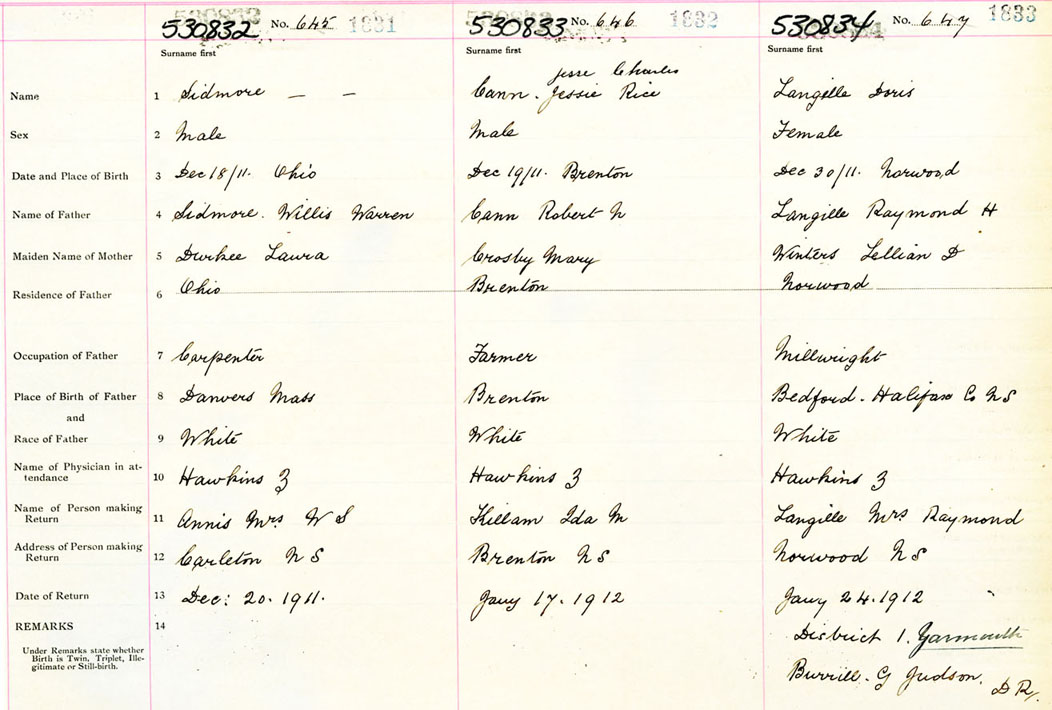 530832 No. 645 1831 530833 No. 646 1832 530834 No. 647 1833
Surname first Surname first Surname first
Jesse Charles
Name 1 Sidmore — — Cann. Jessie Rice Langille Doris
Sex 2 Male Male Female
Date and Place of Birth 3 Dec 18/11. Ohio Dec 19/11. Brenton Dec 30/11. Norwood
Name of Father 4 Sidmore. Willis Warren Cann Robert N Langille Raymond H
Maiden Name of Mother 5 Durkee Laura Crosby Mary Winters Lellian D
Residence of Father 6 Ohio Brenton Norwood
Occupation of Father 7 Carpenter Farmer Millwright
Place of Birth of Father 8 Danvers Mass Brenton Bedford. Halifax Co N S
and
Race of Father 9 White White White
Name of Physician in at-
tendance 10 Hawkins Z Hawkins Z Hawkins Z
Name of Person making
Return 11 Annis Mrs W S Killam Ida M Langille Mrs Raymond
Address of Person making
Return 12 Carleton N S Brenton N S Norwood N S
Date of Return 13 Dec: 20. 1911. Jany 17. 1912 Jany 24. 1912
REMARKS 14 District 1. Yarmouth
Under Remarks state whether
Birth is Twin, Triplet, Ille-
gitimate or Still-birth.
Burrill. G Judson. D R.